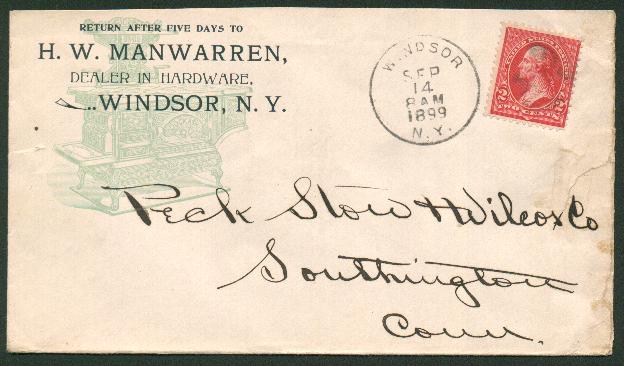 RETURN AFTER FIVE DAYS TO
H. W. MANWARREN,
DEALER IN HARDWARE.
WINDSOR, N. Y.
WINDSOR
SEP
14
8 AM
1899
N. Y.
2 2
Peck Stow & Wilcox Co
Southington
Conn.